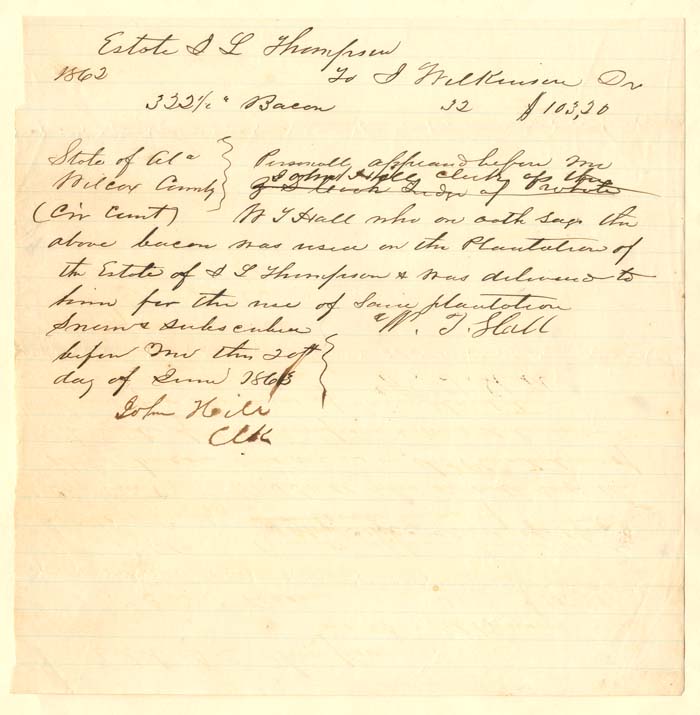 Estate I L Thompson
1862 To J Wilkinson Dr
322 1/2 " Bacon 32 $103,20
State of Ala } Personally appeared before me
John Hill clerk of the
Wilcox County } Judge of Probate
(Cir Court) W T Hall who on oath says the
above bacon was used on the Plantation of
the Estate of I L Thompson & was delivered to
him for the use of said plantation
Sworn & subscribed W. T. Hall
before me this 20th
day of June 1863
John Hill
Clk